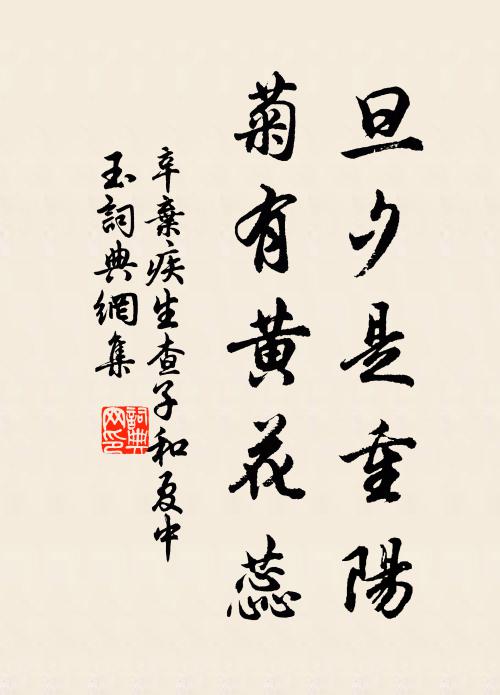 旦夕是重陽
菊有黄花蕊
辛棄疾生查子和夏中
玉詞典網集
詞典网印